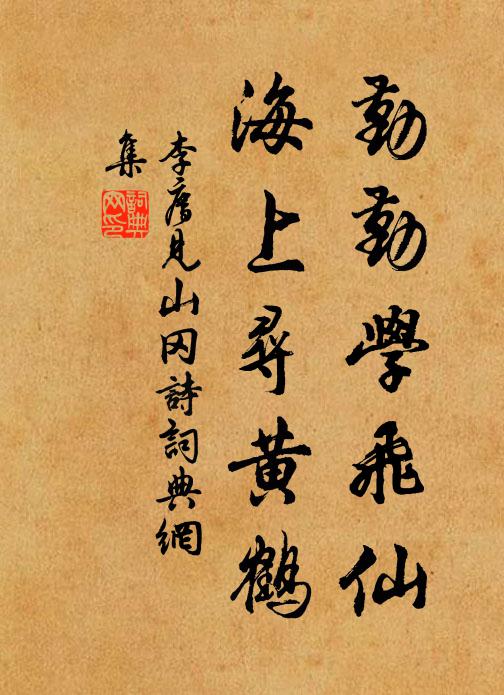 勤勤學飛仙
海上尋黄鶴
李廌見山冈詩詞典網
集
詞典
网印